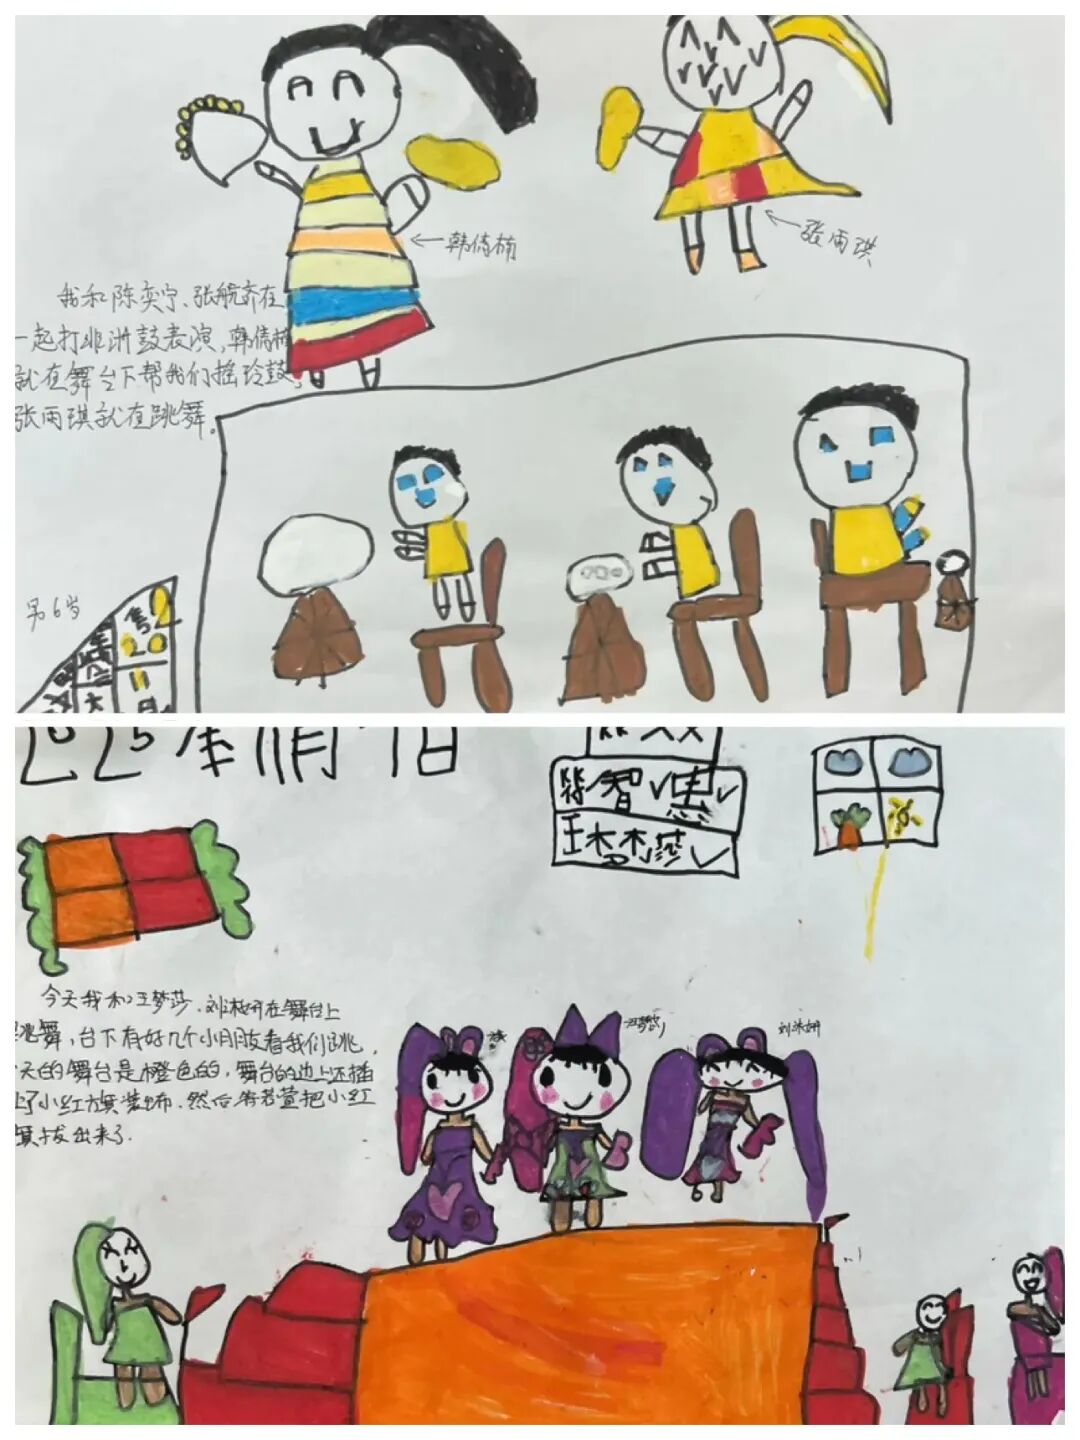 韩倩楠
张雨琪
我和陈奕宁、张航齐在
一起打非洲鼓表演,韩倩楠
就在舞台下帮我们摇玲鼓,
张雨琪就在跳舞。
男6岁
11月
智惠
王梦莎
今天我和王梦莎、刘沐妍在舞台上
跳舞,台下有好几个小朋友看我们跳,
天的舞台是橙色的,舞台的边上还插
上了小红旗装饰,然后有若萱把小红
旗拔出来了.
王梦莎
刘沐妍